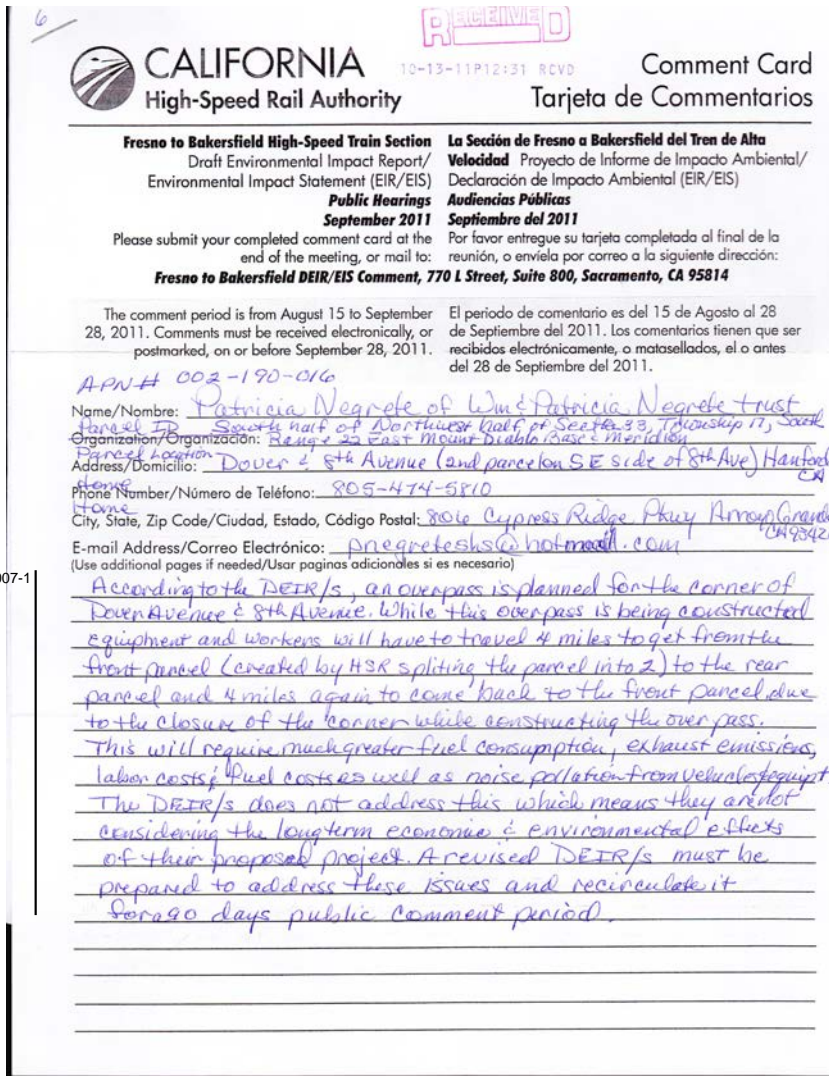 6
RECEIVED
10-13-11P12:31 RCVD
CALIFORNIA
High-Speed Rail Authority
Comment Card
Tarjeta de Commentarios
Fresno to Bakersfield High-Speed Train Section
Draft Environmental Impact Report/
Environmental Impact Statement (EIR/EIS)
Public Hearings
September 2011
Please submit your completed comment card at the
end of the meeting, or mail to:
La Sección de Fresno a Bakersfield del Tren de Alta
Velocidad Proyecto de Informe de Impacto Ambiental/
Declaración de Impacto Ambiental (EIR/EIS)
Audiencias Públicas
Septiembre del 2011
Por favor entregue su tarjeta completada al final de la
reunión, o envíela por correo a la siguiente dirección:
Fresno to Bakersfield DEIR/EIS Comment, 770 L Street, Suite 800, Sacramento, CA 95814
The comment period is from August 15 to September
28, 2011. Comments must be received electronically, or
postmarked, on or before September 28, 2011.
El periodo de comentario es del 15 de Agosto al 28
de Septiembre del 2011. Los comentarios tienen que ser
recibidos electrónicamente, o matasellados, el o antes
del 28 de Septiembre del 2011.
APN# 002-190-016
Name/Nombre: Patricia Negrete of Wm & Patricia Negrete trust
Parcel ID South half of Northwest half of Sect 33, Township 17, South
Organization/Organización: Range 22 East Mount Diablo Base & Meridian
Parcel Location
Address/Domicilio: Dover & 8th Avenue (2nd parcel on SE side of 8th Ave) Hanford
CA
Home
Phone Number/Número de Teléfono: 805-474-5810
Home
City, State, Zip Code/Ciudad, Estado, Código Postal: 806 Cypress Ridge Pkwy Arroyo Grande
CA 93420
E-mail Address/Correo Electrónico: pnegreteshs@hotmail.com
(Use additional pages if needed/Usar paginas adicionales si es necesario)
007-1
According to the DEIR/s, an overpass is planned for the corner of
Dover Avenue & 8th Avenue. While this overpass is being constructed
equipment and workers will have to travel 4 miles to get from the
front parcel (created by HSR spliting the parcel into 2) to the rear
parcel and 4 miles again to come back to the front parcel, due
to the closure of the corner while constructing the over pass.
This will require much greater fuel consumption, exhaust emissions,
labor costs, fuel costs as well as noise pollution from vehicles/equipt
The DEIR/s does not address this which means they are not
considering the longterm economic & environmental effects
of their proposed project. A revised DEIR/s must be
prepared to address these issues and recirculate it
for a 90 days public comment period.